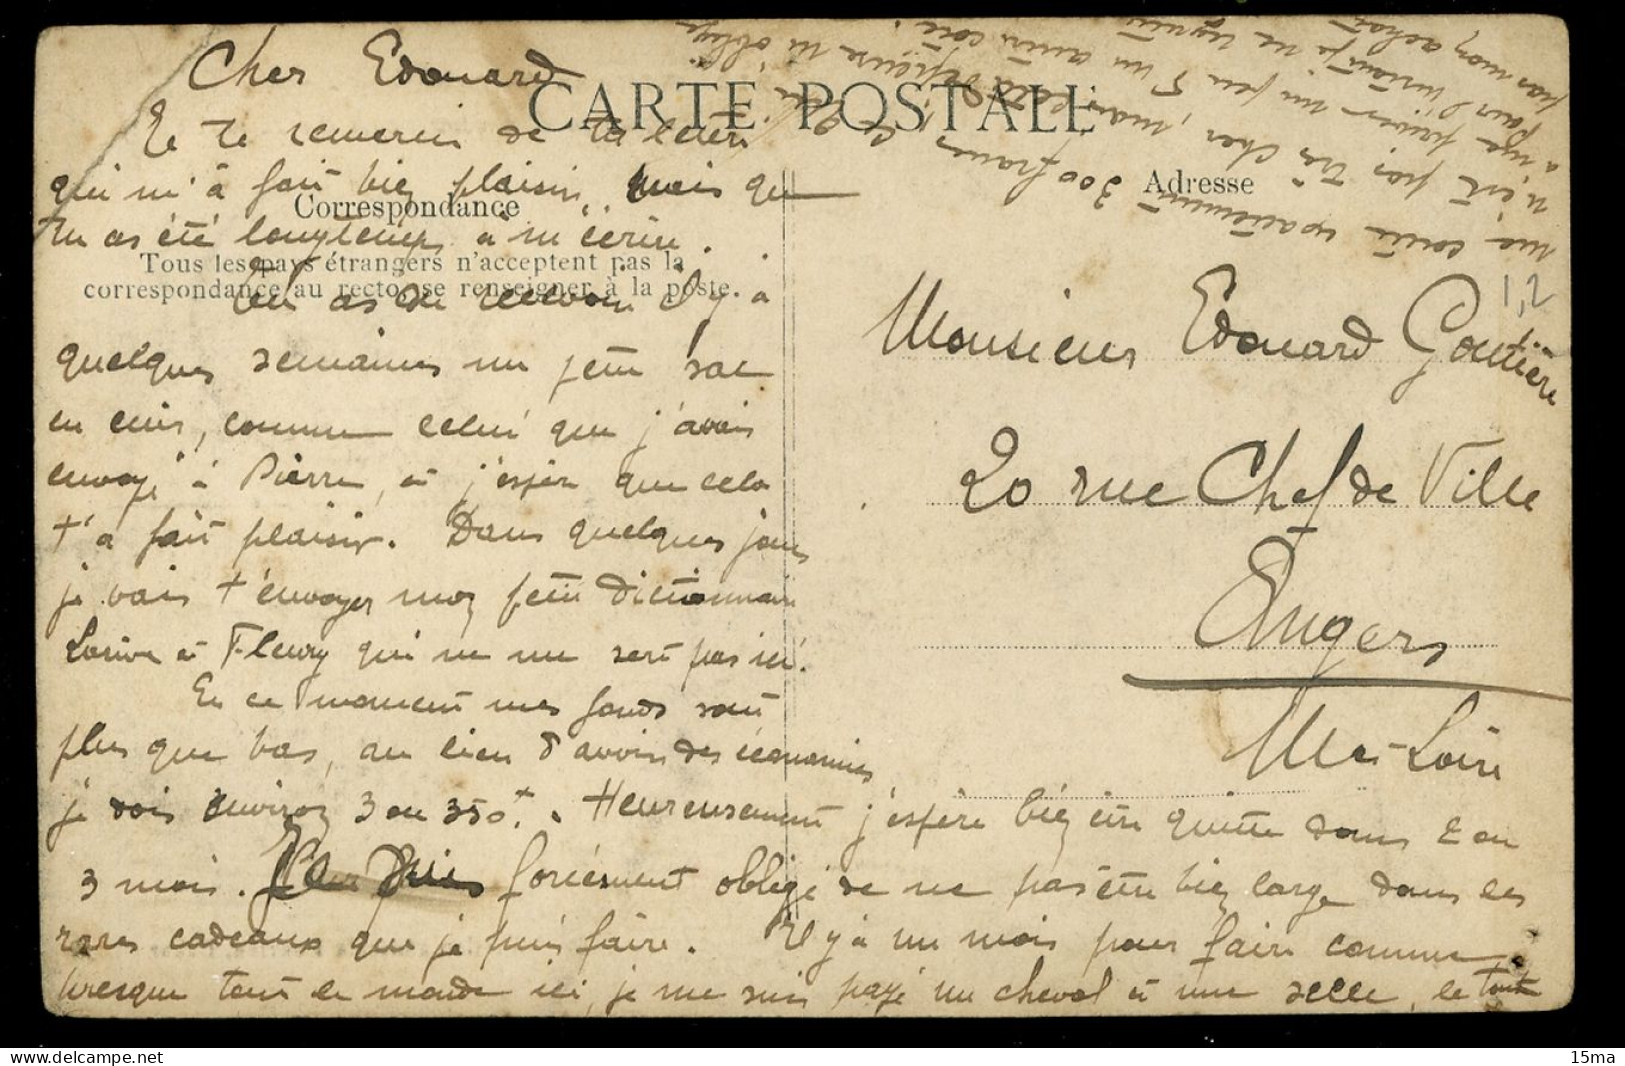 Cher Edouard
CARTE POSTALE
Je te remercie de ta lettre
qui m'à fait bien plaisir, mais que
Correspondance
tu as été longtemps à m'écrire.
Tous les pays étrangers n'acceptent pas la
correspondance au recto, se renseigner à la poste.
Tu as du recevoir il y à
quelques semaines un petit sac
en cuir, comme celui que j'avais
envoyé à Pierre, et j'espère que cela
t'a fait plaisir. Dans quelques jours
je vais t'envoyer mon petit dictionnaire
Larive et Fleury qui ne me sert pas ici.
En ce moment mes fonds sont
plus que bas, au lieu d'avoir des économies
je dois environ 3 ou 350f. Heureusement j'espère bien être quitte dans 2 ou
3 mois. forcément obligé de ne pas être bien large dans les
rares cadeaux que je puis faire. Il y a un mois pour faire comme
presque tout le monde ici, je me suis payé un cheval et une selle, le tout
me coûte exactement 300 francs
n'est pas très cher, mais
un peu d'un autre côté.
pour l'instant je ne regrette
pas mon achat
Adresse
1,2
Monsieur Edouard Goutière
20 rue Chef de Ville
Angers
M et Loire
15ma